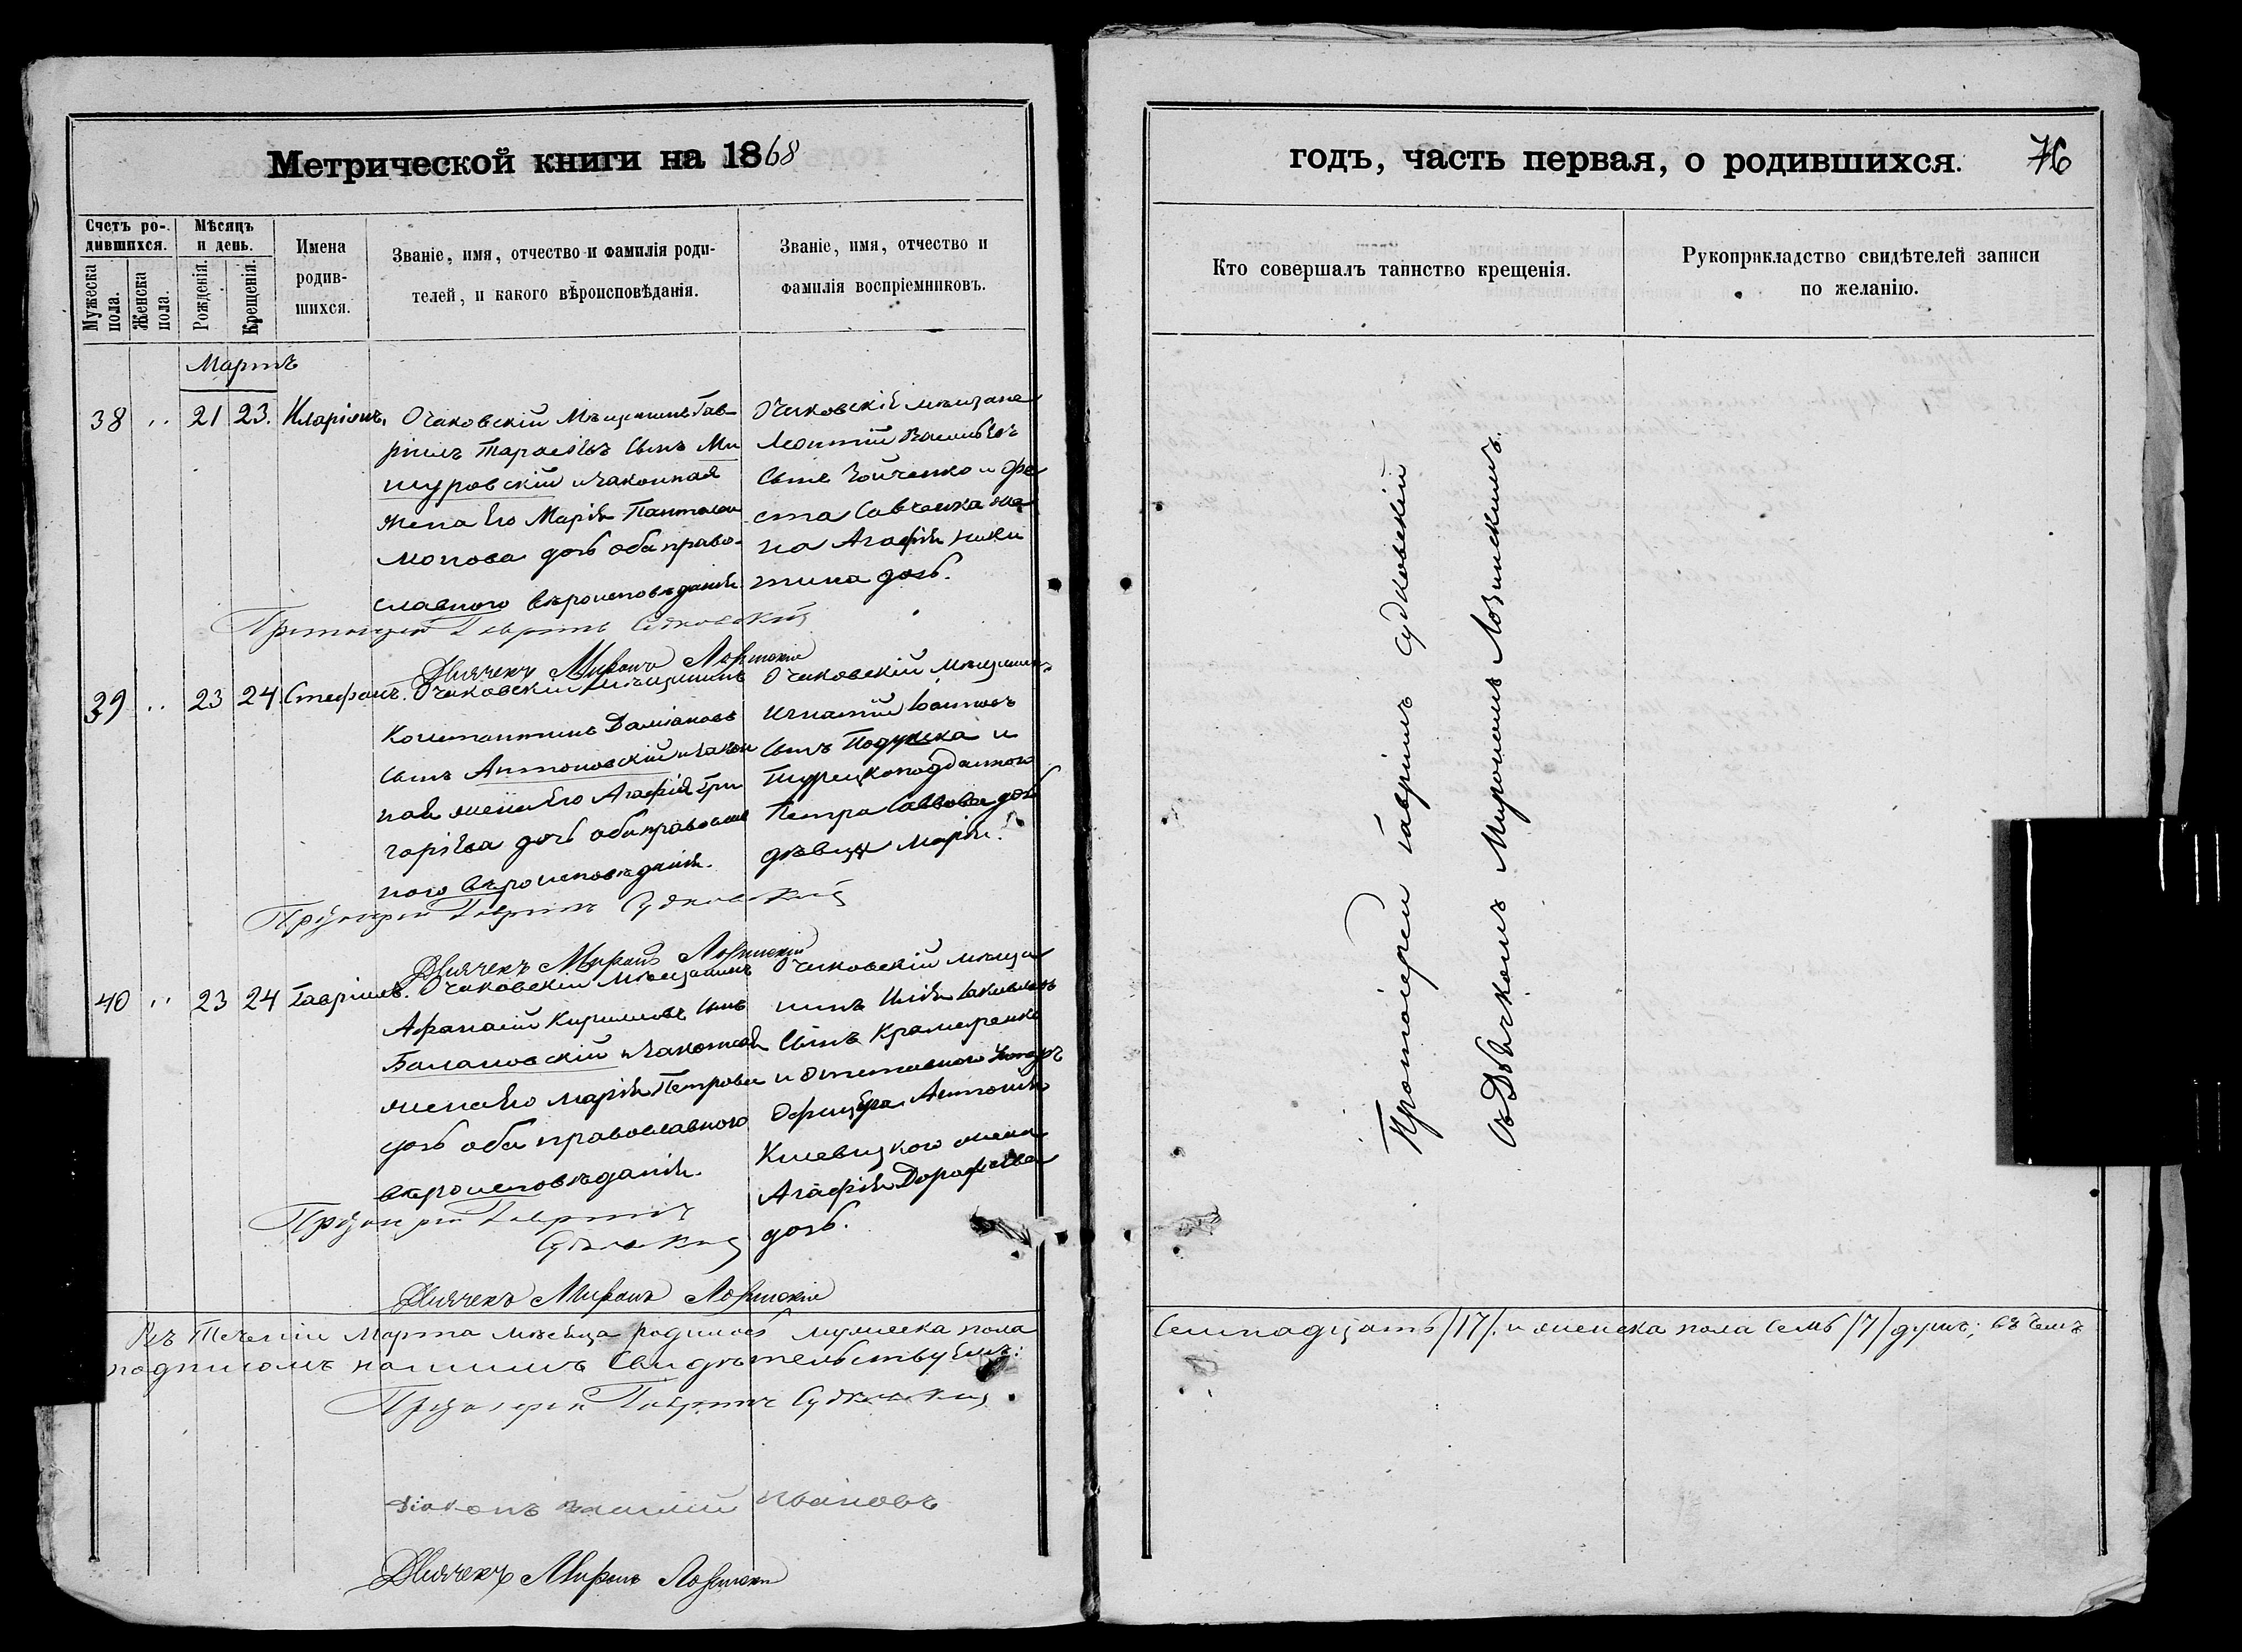 Метрической книги на 1868
Счетъ родившихся.
Мѣсяцъ и день.
Мужеска пола.
Женска пола.
Рожденія.
Крещенія.
Имена
родив-
шихся.
Званіе, имя, отчество и фамилія роди-
телей, и какого вѣроисповѣданія.
Званіе, имя, отчество и
фамилія воспріемниковъ.
Мартъ
38 " 21 23. Иларіонъ.
Очаковскій Мѣщанинъ Гав-
ріилъ Тарасіевъ сынъ Ми
шуровскій и законная
жена его Марія Пантелеи
монова дочь оба право-
славного вѣроисповѣданія.
Очаковскій мѣщане
Леонтій Васильевъ
сынъ Зойченко и Фе
ста Савченка же
на Агафія Ники
тина дочь.
Протоіерей Гавріилъ Судковскій
Дьячекъ Миронъ Лозинскій
39 " 23 24. Стефанъ.
Очаковскій мѣщанинъ
Константинъ Даміановъ
сынъ Антоновскій и закон
ная жена его Агафія Гри
горіева дочь оба православ
ного вѣроисповѣданія.
Очаковскій мѣщанинъ
Игнатій
сынъ Подушка и
Турецкоподданного
Петра Савова дочь
дѣвица Марія.
Протоіерей Гавріилъ Судковскій
Дьячекъ Миронъ Лозинскій
40 " 23 24 Гавріилъ.
Очаковскій мѣщанинъ
Афанасій Кириловъ сынъ
Балановскій и законная
жена его Марія Петрова
дочь оба православного
вѣроисповѣданія.
Очаковскій мѣща
нинъ Илія Іаковлевъ
сынъ Крамаренко
и отставного Унтеръ
Офицера Антонія
жена
Агафія Дорофіева
дочь.
Протоіерей Гавріилъ
Судковскій
Дьячекъ Миронъ Лозинскій
Въ теченіи Марта мѣсяца родилось мужеска пола
подписомъ нашимъ свидѣтельствуемъ:
Протоіерей Гавріилъ Судковскій
Діаконъ Василій Ивановъ
Дьячекъ Миронъ Лозинскій
годъ, часть первая, о родившихся.
76
Кто совершалъ таинство крещенія.
Рукоприкладство свидѣтелей записи
по желанію.
Протоіерей Гавріилъ Судковскій
съ Дьячкомъ Мирономъ Лозинскимъ.
семнадцать /17/. и женска пола семь /7/ душъ; въ чемъ